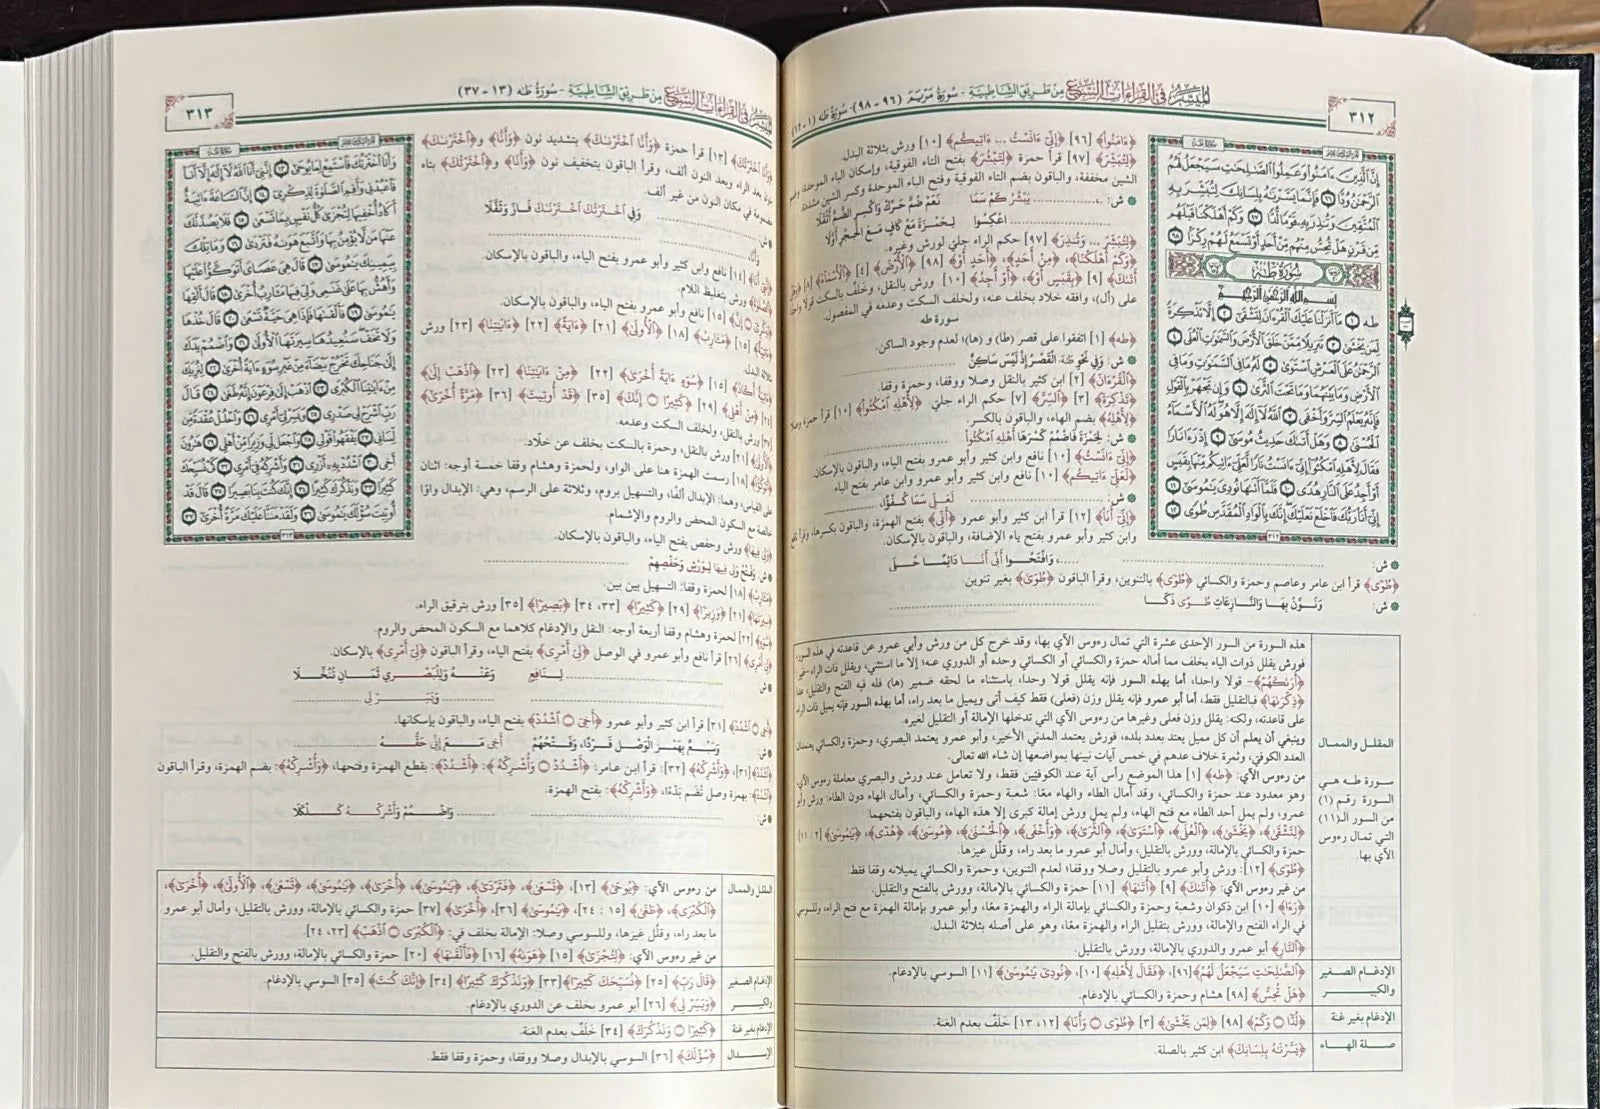 ٣١٢
الميسر في القراءات السبع من طريق الشاطبية - سورة مريم (٩٦ - ٩٨) - سورة طه (١ - ١٢)
إِنَّ ٱلَّذِينَ ءَامَنُوا۟ وَعَمِلُوا۟ ٱلصَّٰلِحَٰتِ سَيَجْعَلُ لَهُمُ
ٱلرَّحْمَٰنُ وُدًّا ٩٦ فَإِنَّمَا يَسَّرْنَٰهُ بِلِسَانِكَ لِتُبَشِّرَ بِهِ
ٱلْمُتَّقِينَ وَتُنذِرَ بِهِۦ قَوْمًا لُّدًّا ٩٧ وَكَمْ أَهْلَكْنَا قَبْلَهُم
مِّن قَرْنٍ هَلْ تُحِسُّ مِنْهُم مِّنْ أَحَدٍ أَوْ تَسْمَعُ لَهُمْ رِكْزًۢا ٩٨
سُورَةُ طه
بِسْمِ ٱللَّهِ ٱلرَّحْمَٰنِ ٱلرَّحِيمِ
طه ١ مَآ أَنزَلْنَا عَلَيْكَ ٱلْقُرْءَانَ لِتَشْقَىٰٓ ٢ إِلَّا تَذْكِرَةً
لِّمَن يَخْشَىٰ ٣ تَنزِيلًا مِّمَّنْ خَلَقَ ٱلْأَرْضَ وَٱلسَّمَٰوَٰتِ ٱلْعُلَى ٤
ٱلرَّحْمَٰنُ عَلَى ٱلْعَرْشِ ٱسْتَوَىٰ ٥ لَهُۥ مَا فِى ٱلسَّمَٰوَٰتِ وَمَا فِى
ٱلْأَرْضِ وَمَا بَيْنَهُمَا وَمَا تَحْتَ ٱلثَّرَىٰ ٦ وَإِن تَجْهَرْ بِٱلْقَوْلِ
فَإِنَّهُۥ يَعْلَمُ ٱلسِّرَّ وَأَخْفَى ٧ ٱللَّهُ لَآ إِلَٰهَ إِلَّا هُوَ لَهُ ٱلْأَسْمَآءُ
ٱلْحُسْنَىٰ ٨ وَهَلْ أَتَىٰكَ حَدِيثُ مُوسَىٰٓ ٩ إِذْ رَءَا نَارًا
فَقَالَ لِأَهْلِهِ ٱمْكُثُوٓا۟ إِنِّىٓ ءَانَسْتُ نَارًا لَّعَلِّىٓ ءَاتِيكُم مِّنْهَا بِقَبَسٍ
أَوْ أَجِدُ عَلَى ٱلنَّارِ هُدًى ١٠ فَلَمَّآ أَتَىٰهَا نُودِىَ يَٰمُوسَىٰٓ ١١
إِنِّىٓ أَنَا۠ رَبُّكَ فَٱخْلَعْ نَعْلَيْكَ إِنَّكَ بِٱلْوَادِ ٱلْمُقَدَّسِ طُوًى ١٢
٣١٢
﴿ءَامَنُوا﴾ [٩٦] ﴿إِنِّي ءَانَسْتُ ... ءَاتِيكُم﴾ [١٠] ورش بثلاثة البدل.
﴿لِتُبَشِّرَ﴾ [٩٧] قرأ حمزة ﴿لِتَبْشُرَ﴾ بفتح التاء الفوقية، وإسكان الباء الموحدة، وضم
الشين مخففة، والباقون بضم التاء الفوقية وفتح الباء الموحدة وكسر الشين مشددة.
ش: ............ يَبْشُرُ كَمْ سَمَا نَعَمْ ضُمَّ حَرِّكْ وَاكْسِرِ الضَّمَّ أَثْقَلَا
............ اعْكِسُوا لِحَمْزَةَ مَعْ كَافٍ مَعَ الْحِجْرِ أَوَّلَا
﴿لِتُبَشِّرَ ... وَتُنذِرَ﴾ [٩٧] حكم الراء جلي لورش وغيره.
﴿وَكَمْ أَهْلَكْنَا﴾، ﴿مِنْ أَحَدٍ﴾، ﴿أَحَدٍ أَوْ﴾ [٩٨] ﴿الْأَرْضَ﴾ [٤] ﴿الْأَسْمَاءُ﴾ [٨] ﴿وَهَلْ
أَتَىٰكَ﴾ [٩] ﴿بِقَبَسٍ أَوْ﴾، ﴿أَوْ أَجِدُ﴾ [١٠] ورش بالنقل، وخلف بالسكت قولا واحدا
على (أل)، وافقه خلاد بخلف عنه، ولخلف السكت وعدمه في المفصول.
سورة طه
﴿طه﴾ [١] اتفقوا على قصر (طا) و (ها)؛ لعدم وجود الساكن.
ش: وَفِي نَحْوِ طه الْقَصْرُ إِذْ لَيْسَ سَاكِنٌ
﴿الْقُرْءَانَ﴾ [٢] ابن كثير بالنقل وصلا ووقفا، وحمزة وقفا.
﴿تَذْكِرَةً﴾ [٣] ﴿السِّرَّ﴾ [٧] حكم الراء جلي. ﴿لِأَهْلِهِ امْكُثُوا﴾ [١٠] قرأ حمزة وصلا
﴿لِأَهْلِهُ﴾ بضم الهاء، والباقون بالكسر.
ش: لِحَمْزَةَ فَاضْمُمْ كَسْرَهَا أَهْلِهِ امْكُثُوا ............
﴿إِنِّي ءَانَسْتُ﴾ [١٠] نافع وابن كثير وأبو عمرو بفتح الياء، والباقون بالإسكان.
﴿لَعَلِّي ءَاتِيكُم﴾ [١٠] نافع وابن كثير وأبو عمرو وابن عامر بفتح الياء
ش: ............ لَعَلِّي سَمَا كُفْؤًا، ............
﴿إِنِّي أَنَا﴾ [١٢] قرأ ابن كثير وأبو عمرو ﴿أَنِّي﴾ بفتح الهمزة، والباقون بكسرها، وقرأ نافع
وابن كثير وأبو عمرو بفتح ياء الإضافة، والباقون بالإسكان.
ش: ............، وَافْتَحُوا أَنِّي أَنَا دَائِمًا حُلَى
﴿طُوًى﴾ قرأ ابن عامر وعاصم وحمزة والكسائي ﴿طُوًى﴾ بالتنوين، وقرأ الباقون ﴿طُوَىٰ﴾ بغير تنوين.
ش: وَنَوِّنْ بِهَا وَالنَّازِعَاتِ طُوًى ذَكَا ............
المقلل والممال
سورة طه هي
السورة رقم (١)
من السور الـ(١١)
التي تمال رءوس
الآي بها.
هذه السورة من السور الإحدى عشرة التي تمال رءوس الآي بها، وقد خرج كل من ورش وأبي عمرو عن قاعدته في هذه السور،
فورش يقلل ذوات الياء بخلف مما أماله حمزة والكسائي أو الكسائي وحده أو الدوري عنه؛ إلا ما استثني، ويقلل ذات الراء -غير
﴿أَرَىٰكَهُمْ﴾- قولا واحدا، أما بهذه السور فإنه يقلل قولا واحدا، باستثناء ما لحقه ضمير (ها) فله فيه الفتح والتقليل، عدا
﴿ذِكْرَىٰهَا﴾ فبالتقليل فقط، أما أبو عمرو فإنه يقلل وزن (فعلى) فقط كيف أتى ويميل ما بعد راء، أما بهذه السور فإنه يميل ذات الراء
على قاعدته، ولكنه: يقلل وزن فعلى وغيرها من رءوس الآي التي تدخلها الإمالة أو التقليل لغيره.
وينبغي أن يعلم أن كل مميل يعتد بعدد بلده، فورش يعتمد المدني الأخير، وأبو عمرو يعتمد البصري، وحمزة والكسائي يعتمدان
العدد الكوفي، وثمرة خلاف عدهم في خمس آيات نبينها بمواضعها إن شاء الله تعالى.
من رءوس الآي: ﴿طه﴾ [١] هذا الموضع رأس آية عند الكوفيين فقط، ولا تعامل عند ورش والبصري معاملة رءوس الآي،
وهو معدود عند حمزة والكسائي، وقد أمال الطاء والهاء معًا: شعبة وحمزة والكسائي، وأمال الهاء دون الطاء: ورش وأبو
عمرو، ولم يمل أحد الطاء مع فتح الهاء، ولم يمل ورش إمالة كبرى إلا هذه الهاء، والباقون بفتحهما
﴿لِتَشْقَىٰ﴾، ﴿يَخْشَىٰ﴾، ﴿الْعُلَى﴾، ﴿اسْتَوَىٰ﴾، ﴿الثَّرَىٰ﴾، ﴿وَأَخْفَى﴾، ﴿الْحُسْنَىٰ﴾، ﴿مُوسَىٰ﴾، ﴿هُدًى﴾، ﴿يَٰمُوسَىٰ﴾ [٢ : ١١]:
حمزة والكسائي بالإمالة، وورش بالتقليل، وأمال أبو عمرو ما بعد راء، وقلّل غيرَها.
﴿طُوًى﴾ [١٢]: ورش وأبو عمرو بالتقليل وصلا ووقفا؛ لعدم التنوين، وحمزة والكسائي يميلانه وقفا فقط.
من غير رءوس الآي: ﴿أَتَىٰكَ﴾ [٩] ﴿أَتَىٰهَا﴾ [١١] حمزة والكسائي بالإمالة، وورش بالفتح والتقليل.
﴿رَءَا﴾ [١٠] ابن ذكوان وشعبة وحمزة والكسائي بإمالة الراء والهمزة معًا، وأبو عمرو بإمالة الهمزة مع فتح الراء، وللسوسي
في الراء الفتح والإمالة، وورش بتقليل الراء والهمزة معًا، وهو على أصله بثلاثة البدل.
﴿النَّارِ﴾ أبو عمرو والدوري بالإمالة، وورش بالتقليل.
الإدغام الصغير
والكبير
﴿الصَّٰلِحَٰتِ سَيَجْعَلُ لَهُمُ﴾ [٩٦]، ﴿فَقَالَ لِأَهْلِهِ﴾ [١٠]، ﴿نُودِيَ يَٰمُوسَىٰ﴾ [١١] السوسي بالإدغام.
﴿هَلْ تُحِسُّ﴾ [٩٨] هشام وحمزة والكسائي بالإدغام.
الإدغام بغير غنة
﴿لُدًّا ۝ وَكَمْ﴾ [٩٨] ﴿لِمَن يَخْشَىٰ﴾ [٣] ﴿طُوًى ۝ وَأَنَا﴾ [١٢، ١٣] خَلَفٌ بعدم الغنة.
صلة الهاء
﴿يَسَّرْنَٰهُ بِلِسَانِكَ﴾ ابن كثير بالصلة.
٣١٣
الميسر في القراءات السبع من طريق الشاطبية - سورة طه (١٣ - ٣٧)
وَأَنَا ٱخْتَرْتُكَ فَٱسْتَمِعْ لِمَا يُوحَىٰٓ ١٣ إِنَّنِىٓ أَنَا ٱللَّهُ لَآ إِلَٰهَ إِلَّآ أَنَا۠
فَٱعْبُدْنِى وَأَقِمِ ٱلصَّلَوٰةَ لِذِكْرِىٓ ١٤ إِنَّ ٱلسَّاعَةَ ءَاتِيَةٌ
أَكَادُ أُخْفِيهَا لِتُجْزَىٰ كُلُّ نَفْسٍۭ بِمَا تَسْعَىٰ ١٥ فَلَا يَصُدَّنَّكَ
عَنْهَا مَن لَّا يُؤْمِنُ بِهَا وَٱتَّبَعَ هَوَىٰهُ فَتَرْدَىٰ ١٦ وَمَا تِلْكَ
بِيَمِينِكَ يَٰمُوسَىٰ ١٧ قَالَ هِىَ عَصَاىَ أَتَوَكَّؤُا۟ عَلَيْهَا
وَأَهُشُّ بِهَا عَلَىٰ غَنَمِى وَلِىَ فِيهَا مَـَٔارِبُ أُخْرَىٰ ١٨ قَالَ أَلْقِهَا
يَٰمُوسَىٰ ١٩ فَأَلْقَىٰهَا فَإِذَا هِىَ حَيَّةٌ تَسْعَىٰ ٢٠ قَالَ خُذْهَا
وَلَا تَخَفْ سَنُعِيدُهَا سِيرَتَهَا ٱلْأُولَىٰ ٢١ وَٱضْمُمْ يَدَكَ
إِلَىٰ جَنَاحِكَ تَخْرُجْ بَيْضَآءَ مِنْ غَيْرِ سُوٓءٍ ءَايَةً أُخْرَىٰ ٢٢ لِنُرِيَكَ
مِنْ ءَايَٰتِنَا ٱلْكُبْرَى ٢٣ ٱذْهَبْ إِلَىٰ فِرْعَوْنَ إِنَّهُۥ طَغَىٰ ٢٤ قَالَ
رَبِّ ٱشْرَحْ لِى صَدْرِى ٢٥ وَيَسِّرْ لِىٓ أَمْرِى ٢٦ وَٱحْلُلْ عُقْدَةً مِّن
لِّسَانِى ٢٧ يَفْقَهُوا۟ قَوْلِى ٢٨ وَٱجْعَل لِّى وَزِيرًا مِّنْ أَهْلِى ٢٩ هَٰرُونَ
أَخِى ٣٠ ٱشْدُدْ بِهِۦٓ أَزْرِى ٣١ وَأَشْرِكْهُ فِىٓ أَمْرِى ٣٢ كَىْ نُسَبِّحَكَ
كَثِيرًا ٣٣ وَنَذْكُرَكَ كَثِيرًا ٣٤ إِنَّكَ كُنتَ بِنَا بَصِيرًا ٣٥ قَالَ قَدْ
أُوتِيتَ سُؤْلَكَ يَٰمُوسَىٰ ٣٦ وَلَقَدْ مَنَنَّا عَلَيْكَ مَرَّةً أُخْرَىٰٓ ٣٧
٣١٣
﴿وَأَنَا اخْتَرْتُكَ﴾ [١٣] قرأ حمزة ﴿وَأَنَّا اخْتَرْنَٰكَ﴾ بتشديد نون ﴿وَأَنَّا﴾ و﴿اخْتَرْنَٰكَ﴾
بنون بعد الراء وبعد النون ألف، وقرأ الباقون بتخفيف نون ﴿وَأَنَا﴾ و﴿اخْتَرْتُكَ﴾ بتاء
مضمومة في مكان النون من غير ألف.
ش: ............ وَفِي اخْتَرْتُكَ اخْتَرْنَاكَ فَازَ وَثَقَّلَا
وَأَنَّا، ............
﴿إِنَّنِي أَنَا﴾ [١٤] نافع وابن كثير وأبو عمرو بفتح الياء، والباقون بالإسكان.
﴿الصَّلَوٰةَ﴾ ورش بتغليظ اللام.
﴿لِذِكْرِي ۝ إِنَّ﴾ [١٥] نافع وأبو عمرو بفتح الياء، والباقون بالإسكان.
﴿ءَاتِيَةٌ﴾ [١٥] ﴿مَـَٔارِبُ﴾ [١٨] ﴿الْأُولَىٰ﴾ [٢١] ﴿ءَايَةً﴾ [٢٢] ﴿ءَايَٰتِنَا﴾ [٢٣] ورش
بثلاثة البدل.
﴿ءَاتِيَةٌ أَكَادُ﴾ [١٥] ﴿سُوءٍ ءَايَةً أُخْرَىٰ﴾ [٢٢] ﴿مِنْ ءَايَٰتِنَا﴾ [٢٣] ﴿اذْهَبْ إِلَىٰ﴾
[٢٤] ﴿مِنْ أَهْلِي﴾ [٢٩] ﴿كَثِيرًا ۝ إِنَّكَ﴾ [٣٥] ﴿قَدْ أُوتِيتَ﴾ [٣٦] ﴿مَرَّةً أُخْرَىٰ﴾
[٣٧] ورش بالنقل، ولخلف السكت وعدمه.
﴿الْأُولَىٰ﴾ [٢١] ورش بالنقل، وحمزة بالسكت بخلف عن خلّاد.
﴿أَتَوَكَّؤُا﴾ [١٨] رسمت الهمزة هنا على الواو، ولحمزة وهشام وقفا خمسة أوجه: اثنان
على القياس، وهما: الإبدال ألفًا، والتسهيل بروم، وثلاثة على الرسم، وهي: الإبدال واوًا
خالصة مع السكون المحض والروم والإشمام.
﴿وَلِيَ فِيهَا﴾ ورش وحفص بفتح الياء، والباقون بالإسكان.
ش: وَفَتْحُ وَلِي فِيهَا لِوَرْشٍ وَحَفْصِهِمْ ............
﴿مَـَٔارِبُ﴾ [١٨] لحمزة وقفا: التسهيل بين بين.
﴿سِيرَتَهَا﴾ [٢١] ﴿وَزِيرًا﴾ [٢٩] ﴿كَثِيرًا﴾ [٣٣، ٣٤] ﴿بَصِيرًا﴾ [٣٥] ورش بترقيق الراء.
﴿سُوءٍ﴾ [٢٢] لحمزة وهشام وقفا أربعة أوجه: النقل والإدغام كلاهما مع السكون المحض والروم.
﴿لِي أَمْرِي﴾ [٢٦] قرأ نافع وأبو عمرو في الوصل ﴿لِيَ أَمْرِي﴾ بفتح الياء، وقرأ الباقون ﴿لِي أَمْرِي﴾ بالإسكان.
ش: ............ لِنَافِعٍ وَعَنْهُ وَلِلْبَصْرِي ثَمَانٍ تُنُخِّلَا
............ وَيَسِّرْ لِي ............
﴿أَخِي ۝ اشْدُدْ﴾ [٣١] قرأ ابن كثير وأبو عمرو ﴿أَخِيَ ۝ اشْدُدْ﴾ بفتح الياء، والباقون بإسكانها.
ش: وَسَبْعٌ بِهَمْزِ الْوَصْلِ فَرْدًا، وَفَتْحُهُمْ أَخِي مَعَ إِنِّي حَقُّهُ ............
﴿اشْدُدْ﴾ [٣١]، ﴿وَأَشْرِكْهُ﴾ [٣٢]: قرأ ابن عامر: ﴿أَشْدُدْ ۝ وَأُشْرِكْهُ﴾: ﴿أَشْدُدْ﴾: بقطع الهمزة وفتحها، ﴿وَأُشْرِكْهُ﴾: بضم الهمزة، وقرأ الباقون
﴿اشْدُدْ﴾: بهمزة وصل تُضم بَدْءًا، ﴿وَأَشْرِكْهُ﴾: بفتح الهمزة.
ش: ............ وَاضْمُمْ وَأَشْرِكْهُ كَلْكَلَا
المقلل والممال
من رءوس الآي: ﴿يُوحَىٰ﴾ [١٣]، ﴿تَسْعَىٰ﴾، ﴿فَتَرْدَىٰ﴾، ﴿يَٰمُوسَىٰ﴾، ﴿أُخْرَىٰ﴾، ﴿يَٰمُوسَىٰ﴾، ﴿تَسْعَىٰ﴾، ﴿الْأُولَىٰ﴾، ﴿أُخْرَىٰ﴾،
﴿الْكُبْرَى﴾، ﴿طَغَىٰ﴾ [١٥ : ٢٤]، ﴿يَٰمُوسَىٰ﴾ [٣٦]، ﴿أُخْرَىٰ﴾ [٣٧] حمزة والكسائي بالإمالة، وورش بالتقليل، وأمال أبو عمرو
ما بعد راء، وقلّل غيرَها، وللسوسي وصلا: الإمالة بخلف في: ﴿الْكُبْرَى ۝ اذْهَبْ﴾ [٢٣، ٢٤].
من غير رءوس الآي: ﴿لِتُجْزَىٰ﴾ [١٥] ﴿هَوَىٰهُ﴾ [١٦] ﴿فَأَلْقَىٰهَا﴾ [٢٠] حمزة والكسائي بالإمالة، وورش بالفتح والتقليل.
الإدغام الصغير
والكبير
﴿قَالَ رَبِّ﴾ [٢٥] ﴿نُسَبِّحَكَ كَثِيرًا﴾ [٣٣] ﴿وَنَذْكُرَكَ كَثِيرًا﴾ [٣٤] ﴿إِنَّكَ كُنتَ﴾ [٣٥] السوسي بالإدغام.
﴿وَيَسِّرْ لِي﴾ [٢٦] أبو عمرو بخلف عن الدوري بالإدغام.
الإدغام بغير غنة
﴿كَثِيرًا ۝ وَنَذْكُرَكَ﴾ [٣٤] خَلَفٌ بعدم الغنة.
الإبدال
﴿سُؤْلَكَ﴾ [٣٦] السوسي بالإبدال وصلا ووقفا، وحمزة وقفا فقط.